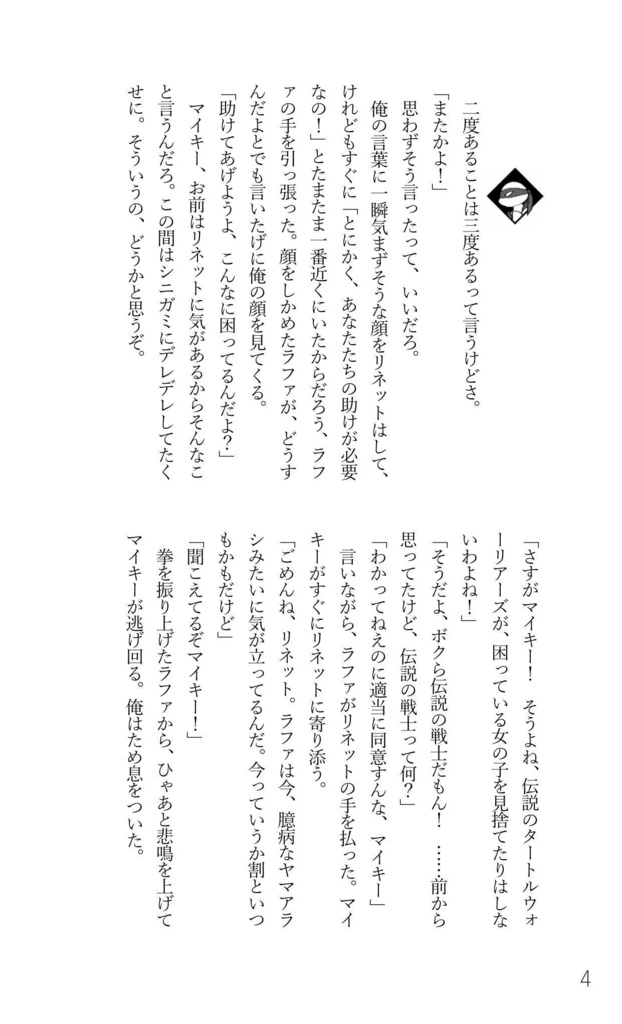 二度あることは三度あるって言うけどさ。
「またかよ！」
思わずそう言ったって、いいだろ。
俺の言葉に一瞬気まずそうな顔をリネットはして、
けれどもすぐに「とにかく、あなたたちの助けが必要
なの！」とたまたま一番近くにいたからだろう、ラフ
ァの手を引っ張った。顔をしかめたラファが、どうす
んだよとでも言いたげに俺の顔を見てくる。
「助けてあげようよ、こんなに困ってるんだよ？」
マイキー、お前はリネットに気があるからそんなこ
と言うんだろ。この間はシニガミにデレデレしてたく
せに。そういうの、どうかと思うぞ。
「さすがマイキー！　そうよね、伝説のタートルウォ
ーリアーズが、困っている女の子を見捨てたりはしな
いわよね！」
「そうだよ、ボクら伝説の戦士だもん！　……前から
思ってたけど、伝説の戦士って何？」
「わかってねえのに適当に同意すんな、マイキー」
言いながら、ラファがリネットの手を払った。マイ
キーがすぐにリネットに寄り添う。
「ごめんね、リネット。ラファは今、臆病なヤマアラ
シみたいに気が立ってるんだ。今っていうか割といつ
もかもだけど」
「聞こえてるぞマイキー！」
拳を振り上げたラファから、ひゃあと悲鳴を上げて
マイキーが逃げ回る。俺はため息をついた。
4